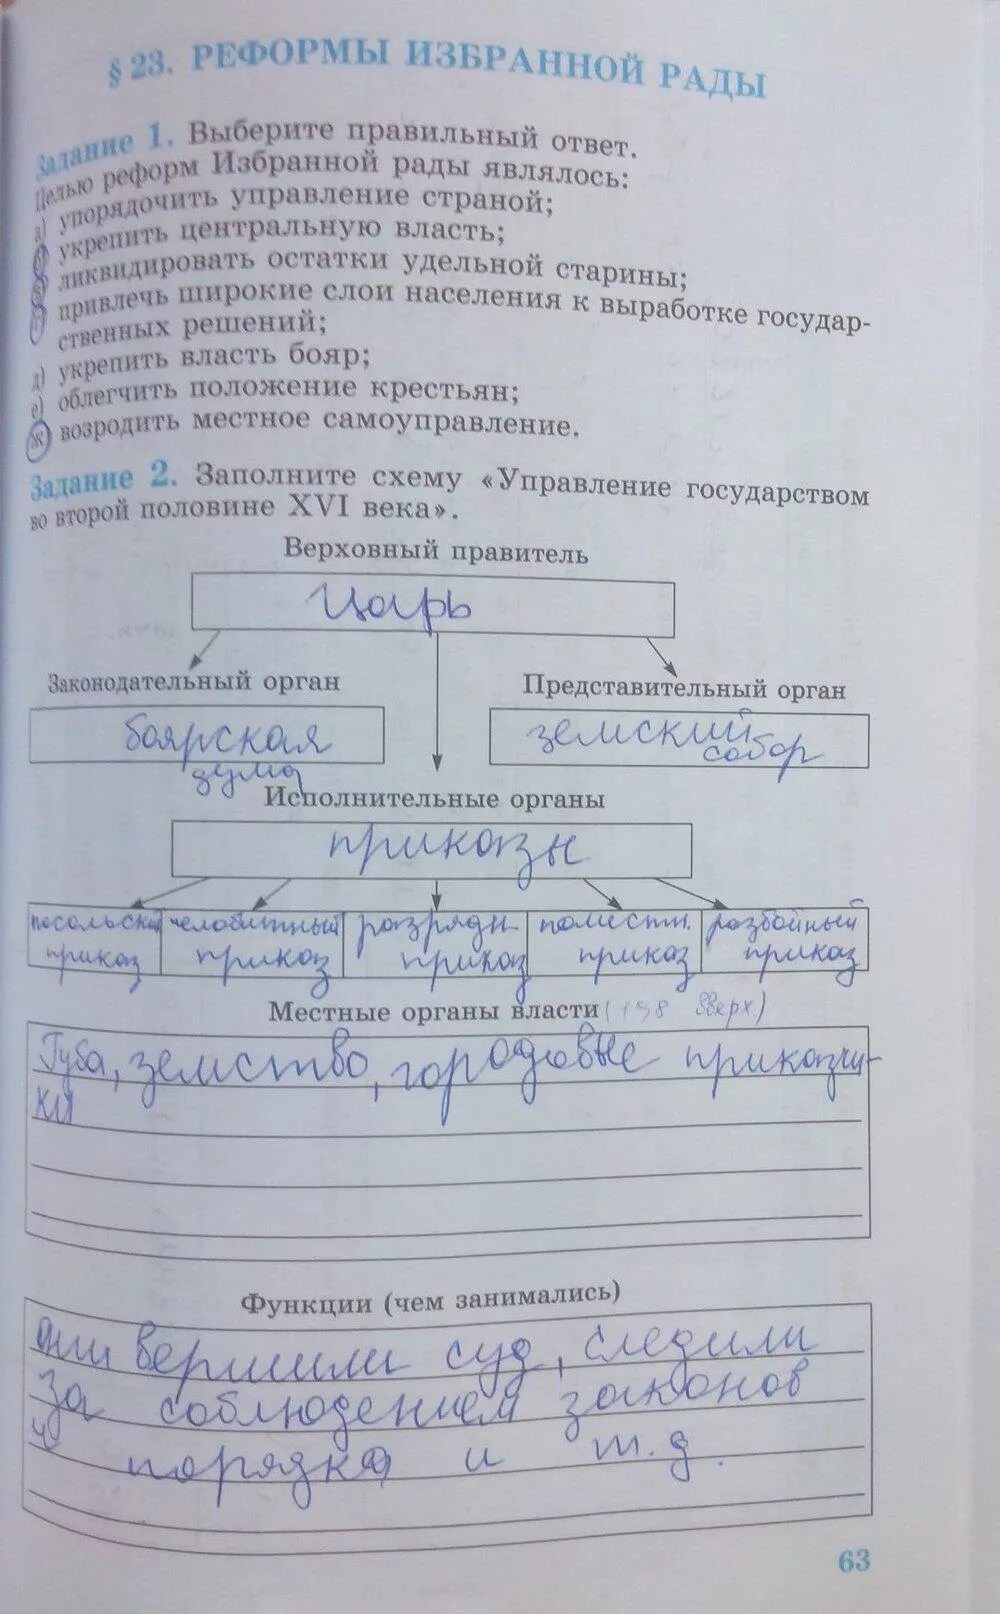 § 23. РЕФОРМЫ ИЗБРАННОЙ РАДЫ
Задание 1. Выберите правильный ответ.
Целью реформ Избранной рады являлось:
а) упорядочить управление страной;
укрепить центральную власть;
ликвидировать остатки удельной старины;
привлечь широкие слои населения к выработке государ-
ственных решений;
д) укрепить власть бояр;
е) облегчить положение крестьян;
ж) возродить местное самоуправление.
Задание 2. Заполните схему «Управление государством
во второй половине XVI века».
Верховный правитель
Царь
Законодательный орган
Представительный орган
боярская
дума
земский
собор
Исполнительные органы
приказы
посольский
приказ
челобитный
приказ
разрядн.
приказ
поместн.
приказ
разбойный
приказ
Местные органы власти (198 вверх.)
Губа, земство, городовые приказчи-
ки
Функции (чем занимались)
они вершили суд, следили
за соблюдением законов
и порядка и т.д.
63